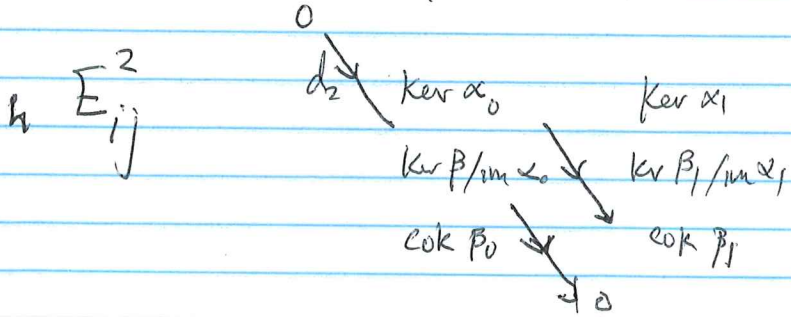 0
h E²ᵢⱼ d₂ Ker α₀ Ker α₁
Kr β/im α₀ Kr β₁/im α₁
cok β₀ cok β₁
0